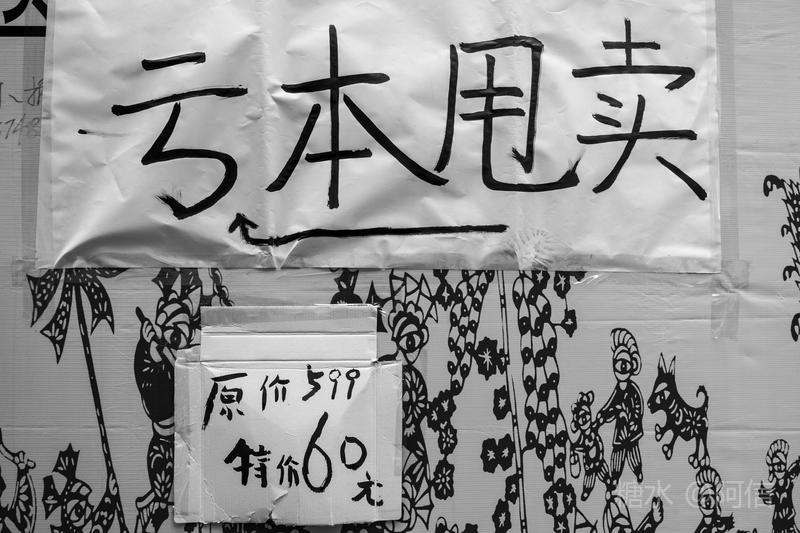 亏本甩卖
原价599
特价60元
糖水 @阿信